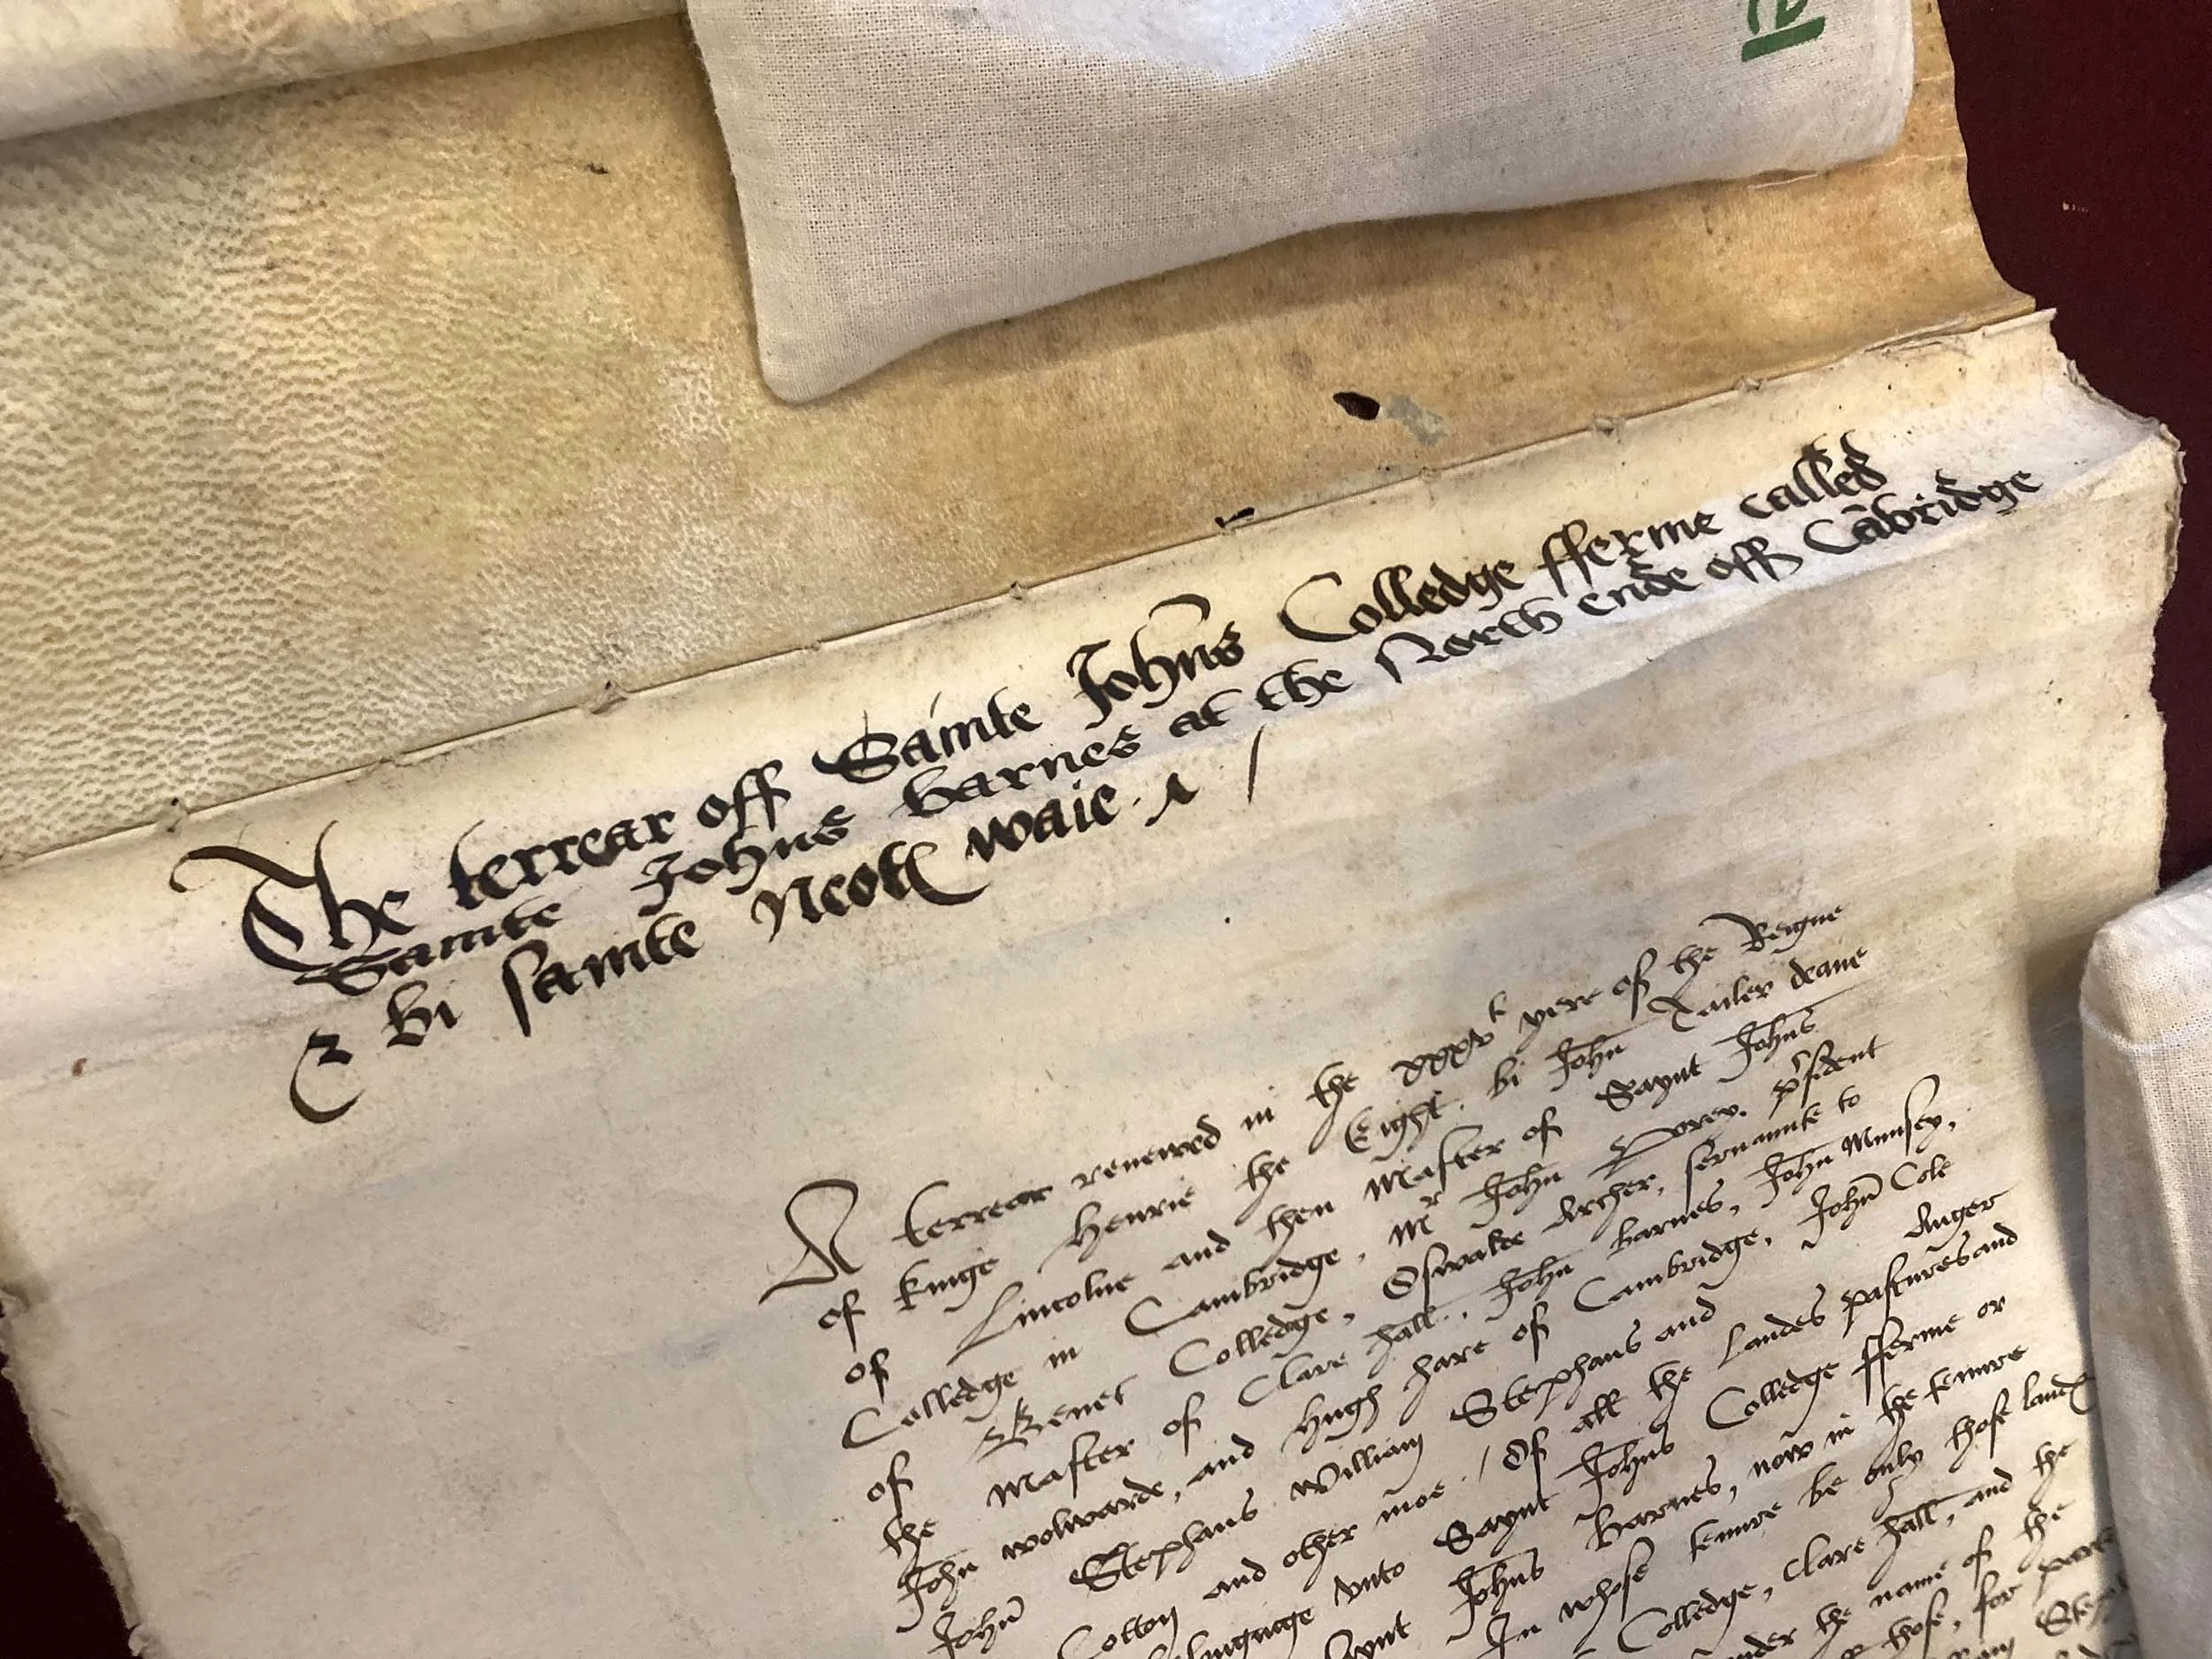 The terrear off Sainte Johns Colledge fferme called
Sainte Johns barnes at the North ende off Cābridge
& bi sainte Neotꝭ waie
A terrear renewed in the xxxvᵗ yere of the Reigne
of kinge Henrie the Eight. bi John Tailer deane
of Lincolne and then Master of Saynt Johns
Colledge in Cambridge, Mʳ John Porey. p'sident
of Benet Colledge, Oswalde Archer, seruaunte to
the Master of Clare hall, John Barnes, John Munsey,
John wolwarde, and Hugh hare of Cambridge, John Cole
John Stephans William Stephans and Auger
Cotton and other moe / Of all the Landes pastures and
vnto Saynt Johns Colledge fferme or
Saynt Johns Barnes, now in the tenure
In whose tenure be only those landꝭ
Colledge, Clare hall, and the
vnder the name of the
those, for